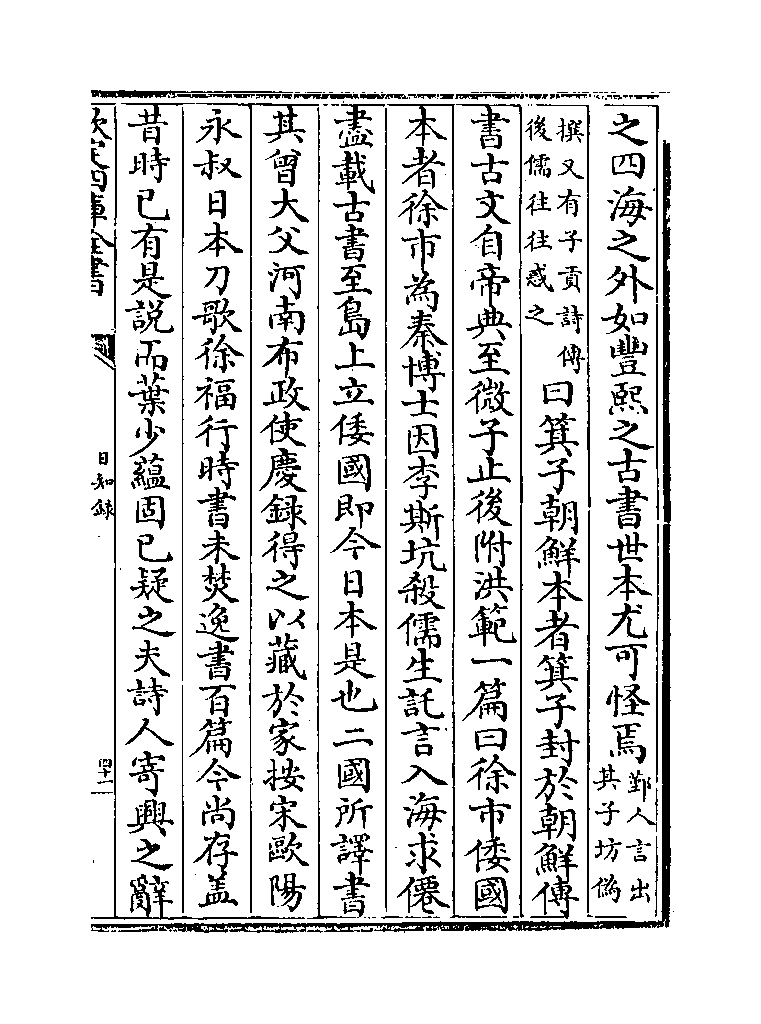 之四海之外如豐熙之古書世本尤可怪焉鄞人言出其子坊偽
撰又有子貢詩傳後儒往往惑之曰箕子朝鮮本者箕子封於朝鮮傳
書古文自帝典至微子止後附洪範一篇曰徐市倭國
本者徐市為秦博士因李斯坑殺儒生託言入海求僊
盡載古書至島上立倭國即今日本是也二國所譯書
其曾大父河南布政使慶録得之以藏於家按宋歐陽
永叔日本刀歌徐福行時書未焚逸書百篇今尚存盖
昔時已有是説而葉少蘊固已疑之夫詩人寄興之辭
欽定四庫全書
日知録
四十一